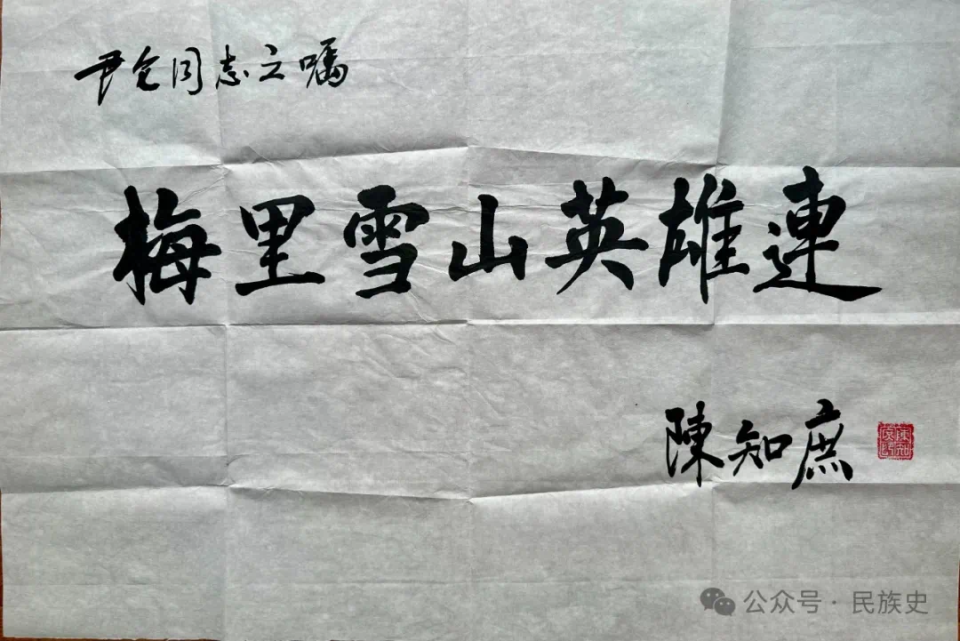 尹仑同志之嘱
梅里雪山英雄連
陳知庶
公众号 · 民族史